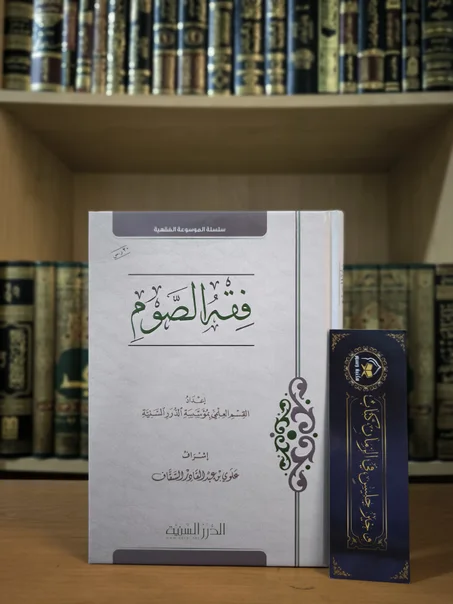 سلسلة الموسوعة الفقهية
فِقهُ الصَّومِ
إعداد
القسم العلمي بمؤسسة الدرر السنية
إشراف
علوي بن عبد القادر السقاف
الدرر السنية
وخير جليس في الزمان كتاب